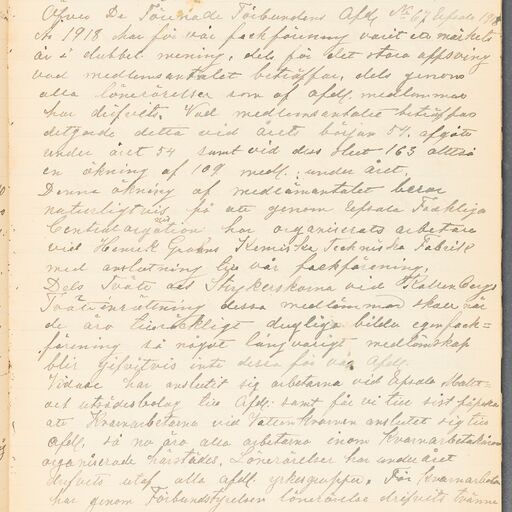 Öfver De Förenade Förbundens Afd. No 67 Upsala 191
År 1918 har för vår fackförening varit ett märkets-
år i dubbel mening, dels för det stora uppsving
vad medlemsantalet beträffar, dels genom
alla lönerörelser som af afd. medlemmar
har drifvits. Vad medlemsantalet beträffar
utgjorde detta vid året början 54. afgått
under året 54 samt vid dess slut 163 alltså
en ökning af 109 medl. under året.
Denna ökning af medlemantalet beror
naturligtvis på att genom Upsala Fackliga
Centralorgation har organiserats arbetare
vid Henrik Kemiska tekniska Fabrik
med anslutning till vår fackförening.
Dels Tvätt och Strykerskorna vid Kallenbergs
Tvättinrättning dessa medlämmar skall när
de äro tillräckligt dugliga bilda egen fack=
förening så något långvarigt medlemskap
blir gifvitvis inte dessa för vår afd.
Vidare har anslutit sig arbetarna vid Upsala
och utsädesbolag till afd. samt får vi till sist
att Kvarnarbetarna vid Vattenkvarnen anslutet sig till
afd. så nu äro alla arbetarna inom
organiserade härstädes. Lönerörelser har under året
drifvits utaf alla afd. yrkesgrupper. För kvarnarbetar
har genom Förbundstyrelsen lönerörelse drifvits tvänne